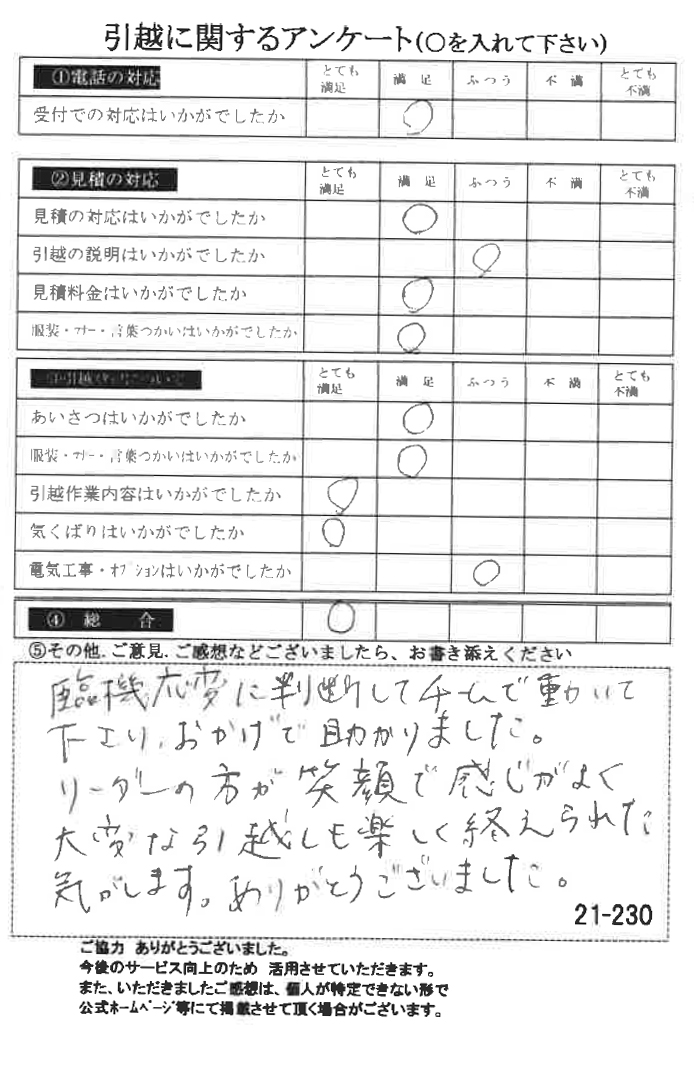 引越に関するアンケート(○を入れて下さい)
①電話の対応 とても満足 満足 ふつう 不満 とても不満
受付での対応はいかがでしたか ○
②見積の対応 とても満足 満足 ふつう 不満 とても不満
見積の対応はいかがでしたか ○
引越の説明はいかがでしたか ○
見積料金はいかがでしたか ○
服装・マナー・言葉つかいはいかがでしたか ○
とても満足 満足 ふつう 不満 とても不満
あいさつはいかがでしたか ○
服装・マナー・言葉つかいはいかがでしたか ○
引越作業内容はいかがでしたか ○
気くばりはいかがでしたか ○
電気工事・オプションはいかがでしたか ○
④ 総 合 ○
⑤その他、ご意見、ご感想などございましたら、お書き添えください
臨機応変に判断してチームで動いて
下さり、おかげで助かりました。
リーダーの方が笑顔で感じがよく
大変な引越しも楽しく終えられた
気がします。ありがとうございました。
21-230
ご協力 ありがとうございました。
今後のサービス向上のため 活用させていただきます。
また、いただきましたご感想は、個人が特定できない形で
公式ホームページ等にて掲載させて頂く場合がございます。